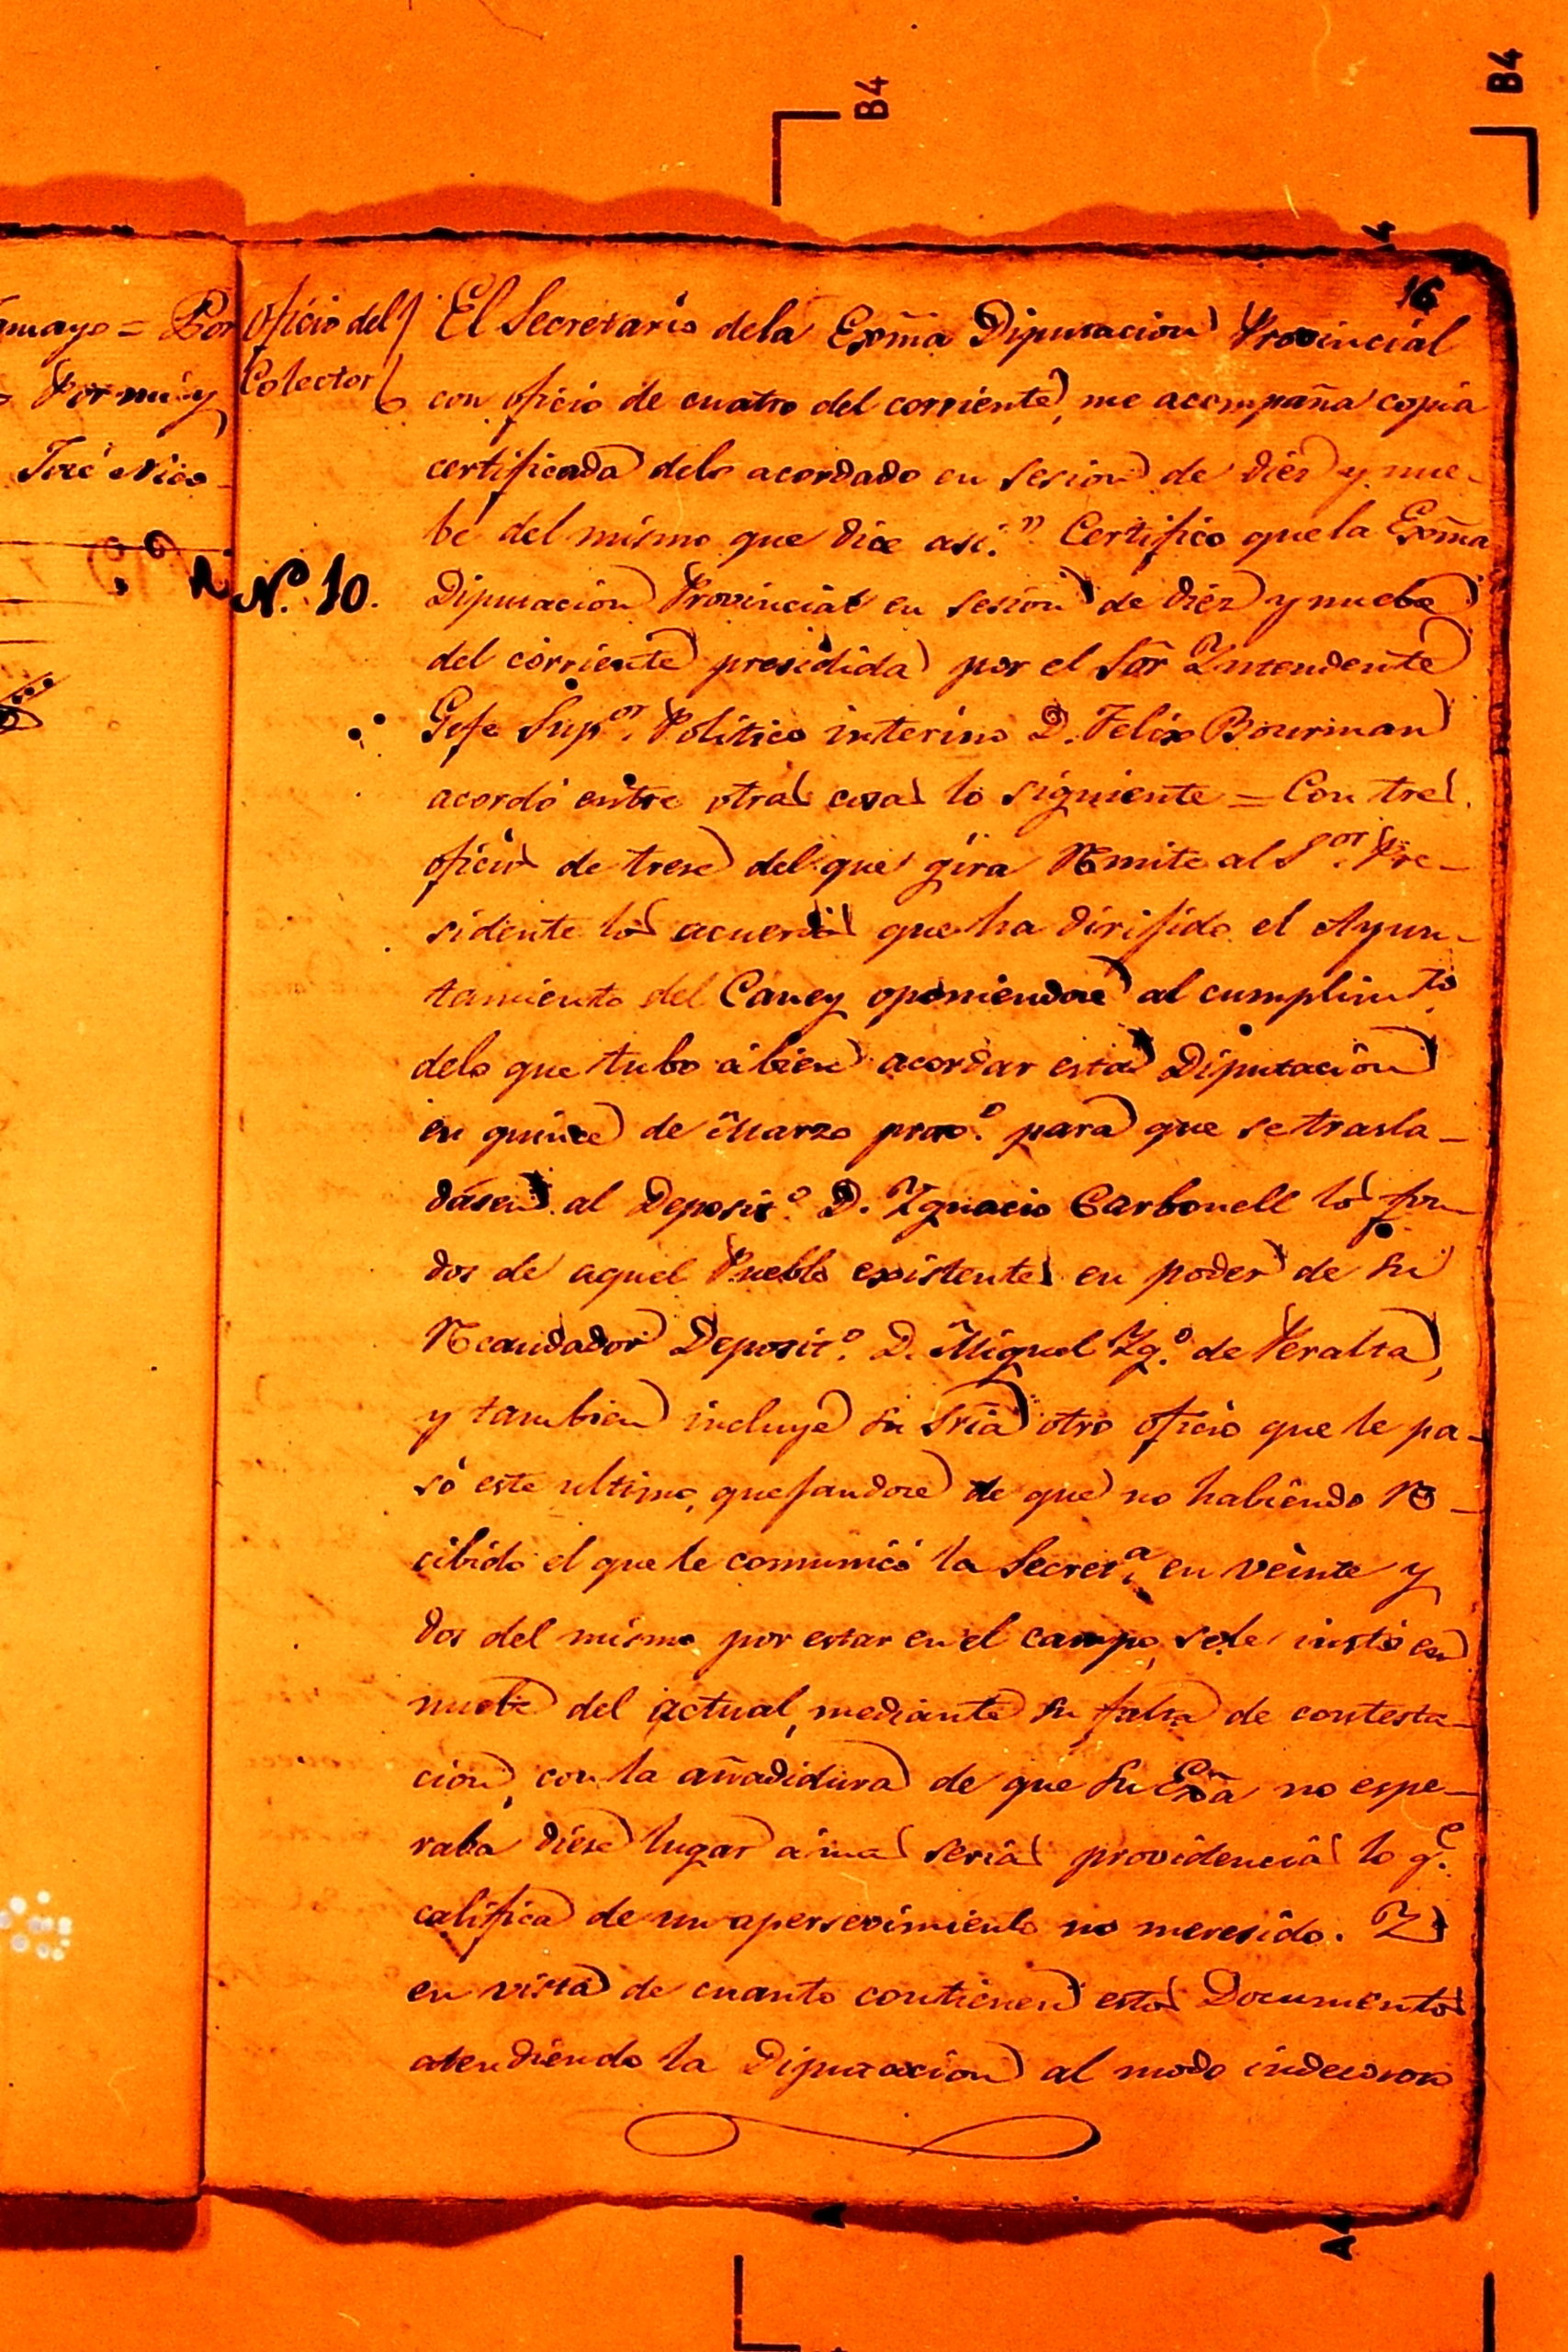 B4
B4
16
amayo = Por
Por mi y
José Nico
Oficio del
Colector
N.º 10.
El Secretario dela Exm̃a Diputacion Provincial
con oficio de cuatro del corriente, me acompaña copia
certificada delo acordado en sesion de diez y nue-
be del mismo que dice asi." Certifico que la Exm̃a
Diputacion Provincial en sesion de diez y nuebe
del corriente presidida por el Sõr Yntendente
Gefe Sup.ᵒʳ Politico interino D. Felix Bourman
acordó entre otras cosas lo siguiente = Con tres
oficios de trese del que gira Remite al S.ᵒʳ Pre-
sidente los acuerdos que ha dirijido el Ayun-
tamiento del Caney oponiendose al cumplim.ᵗᵒ
delo que tubo ábien acordar esta Diputacion
en quince de Marzo proxᵒ. para que se trasla-
dasen al Deposit.º D. Ygnacio Carbonell los fon-
dos de aquel Pueblo existentes en poder de su
Recaudador Deposit.º D. Miguel Yg.º de Peralta,
y tambien incluye su Sriã otro oficio que le pa-
só este ultimo, quejandose de que no habiendo Re-
cibido el que le comunicó la Secret.ª en veinte y
dos del mismo por estar en el campo, sele instó en
nuebe del actual, mediante su falta de contesta-
cion, con la añadidura de que Su Exã no espe-
raba diese lugar ámas serias providencias lo q.ᵉ
califica de un apersevimiento no meresido. Y
en vista de cuanto contienen estos Documentos
atendiendo la Diputacion al modo indecoroso